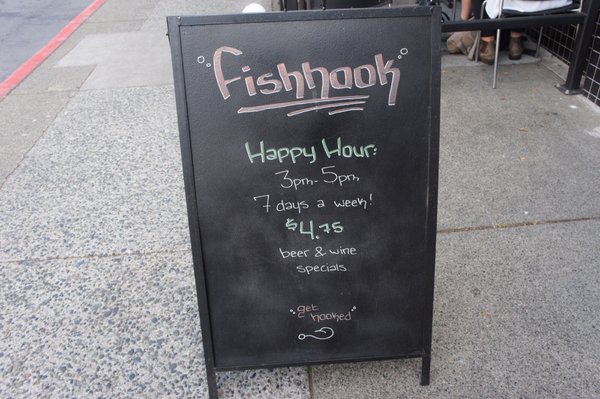 Fishhook
Happy Hour:
3pm-5pm
7 days a week!
$4.75
beer & wine
specials
"get
hooked"